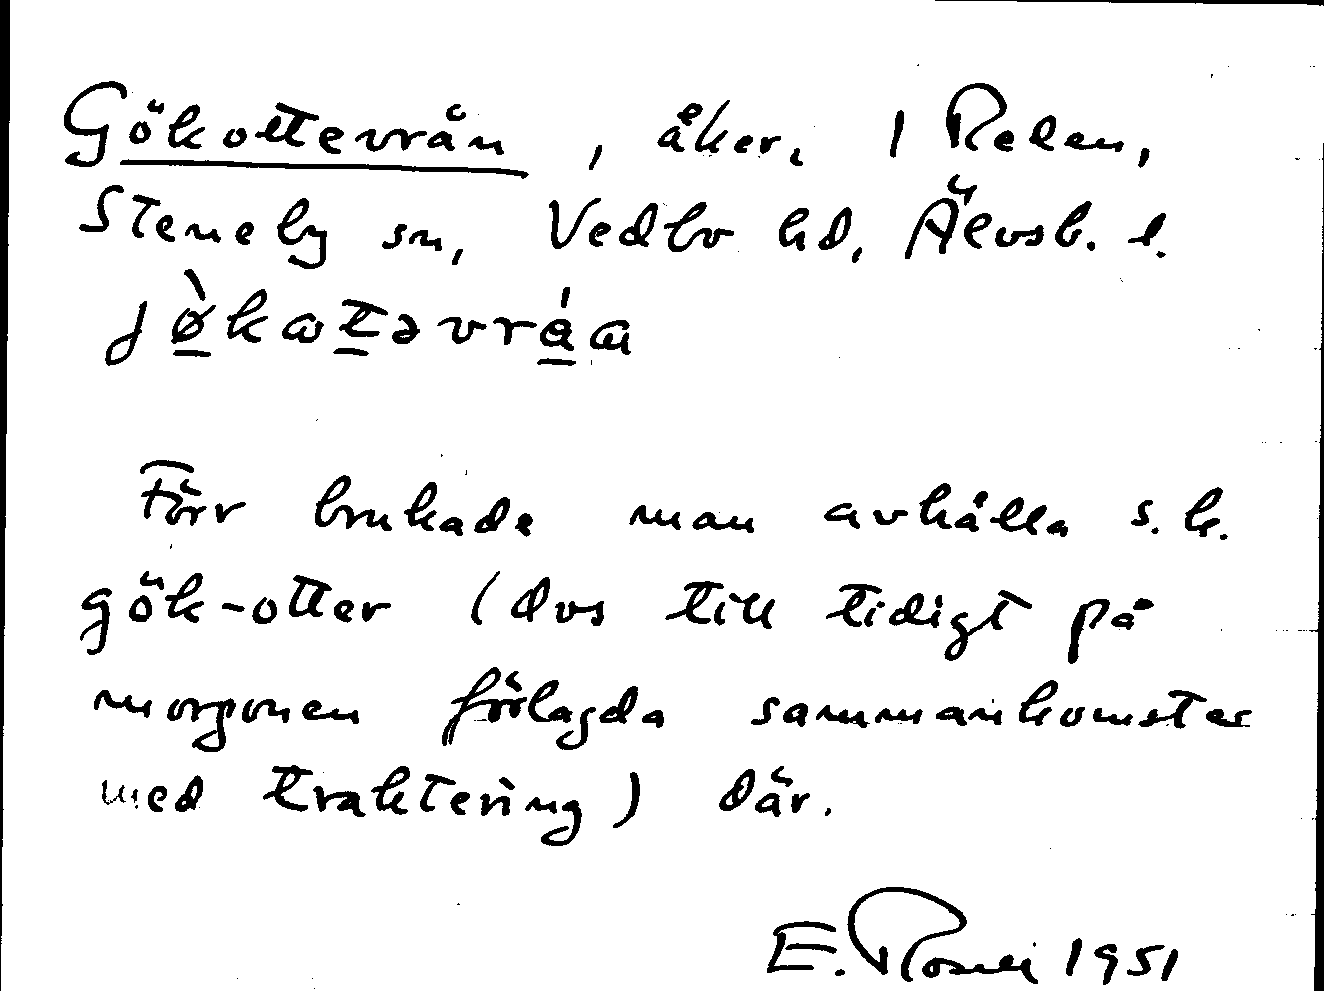 Gökottevrån, åker, 1 Relen,
Steneby sn, Vedbo hd, Älvsb. l.
Förr brukade man avhålla s. k.
gök-otter (dvs till tidigt på
morgonen förlagda sammankomster
med traktering) där.
E. 1951